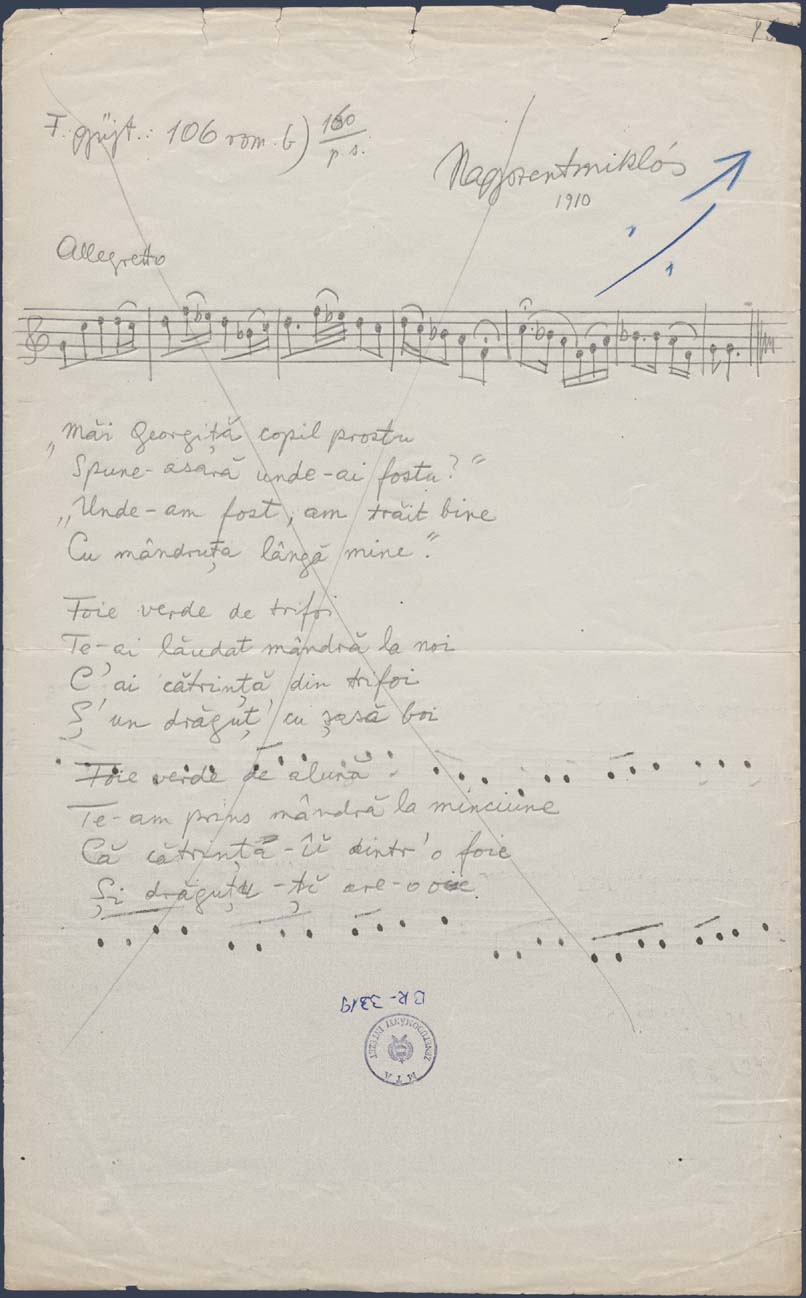 F. gyűjt.: 106 rom. b) 160/p. s.
Nagyszentmiklós
1910
Allegretto
„Măi Georgiță copil prostu
Spune-asară unde-ai fostu?"
„Unde-am fost, am trăit bine
Cu mândruța lângă mine."
Foie verde de trifoi
Te-ai lăudat mândră la noi
C'ai cătrință din trifoi
Ș'un drăguț cu șasă boi
Foie verde de alună
Te-am prins mândră la minciune
Că cătrință-îi dintr'o foie
Și drăguțu-ți are-o oie.
BR-3319
MTA
ZENETUDOMÁNYI INTÉZET